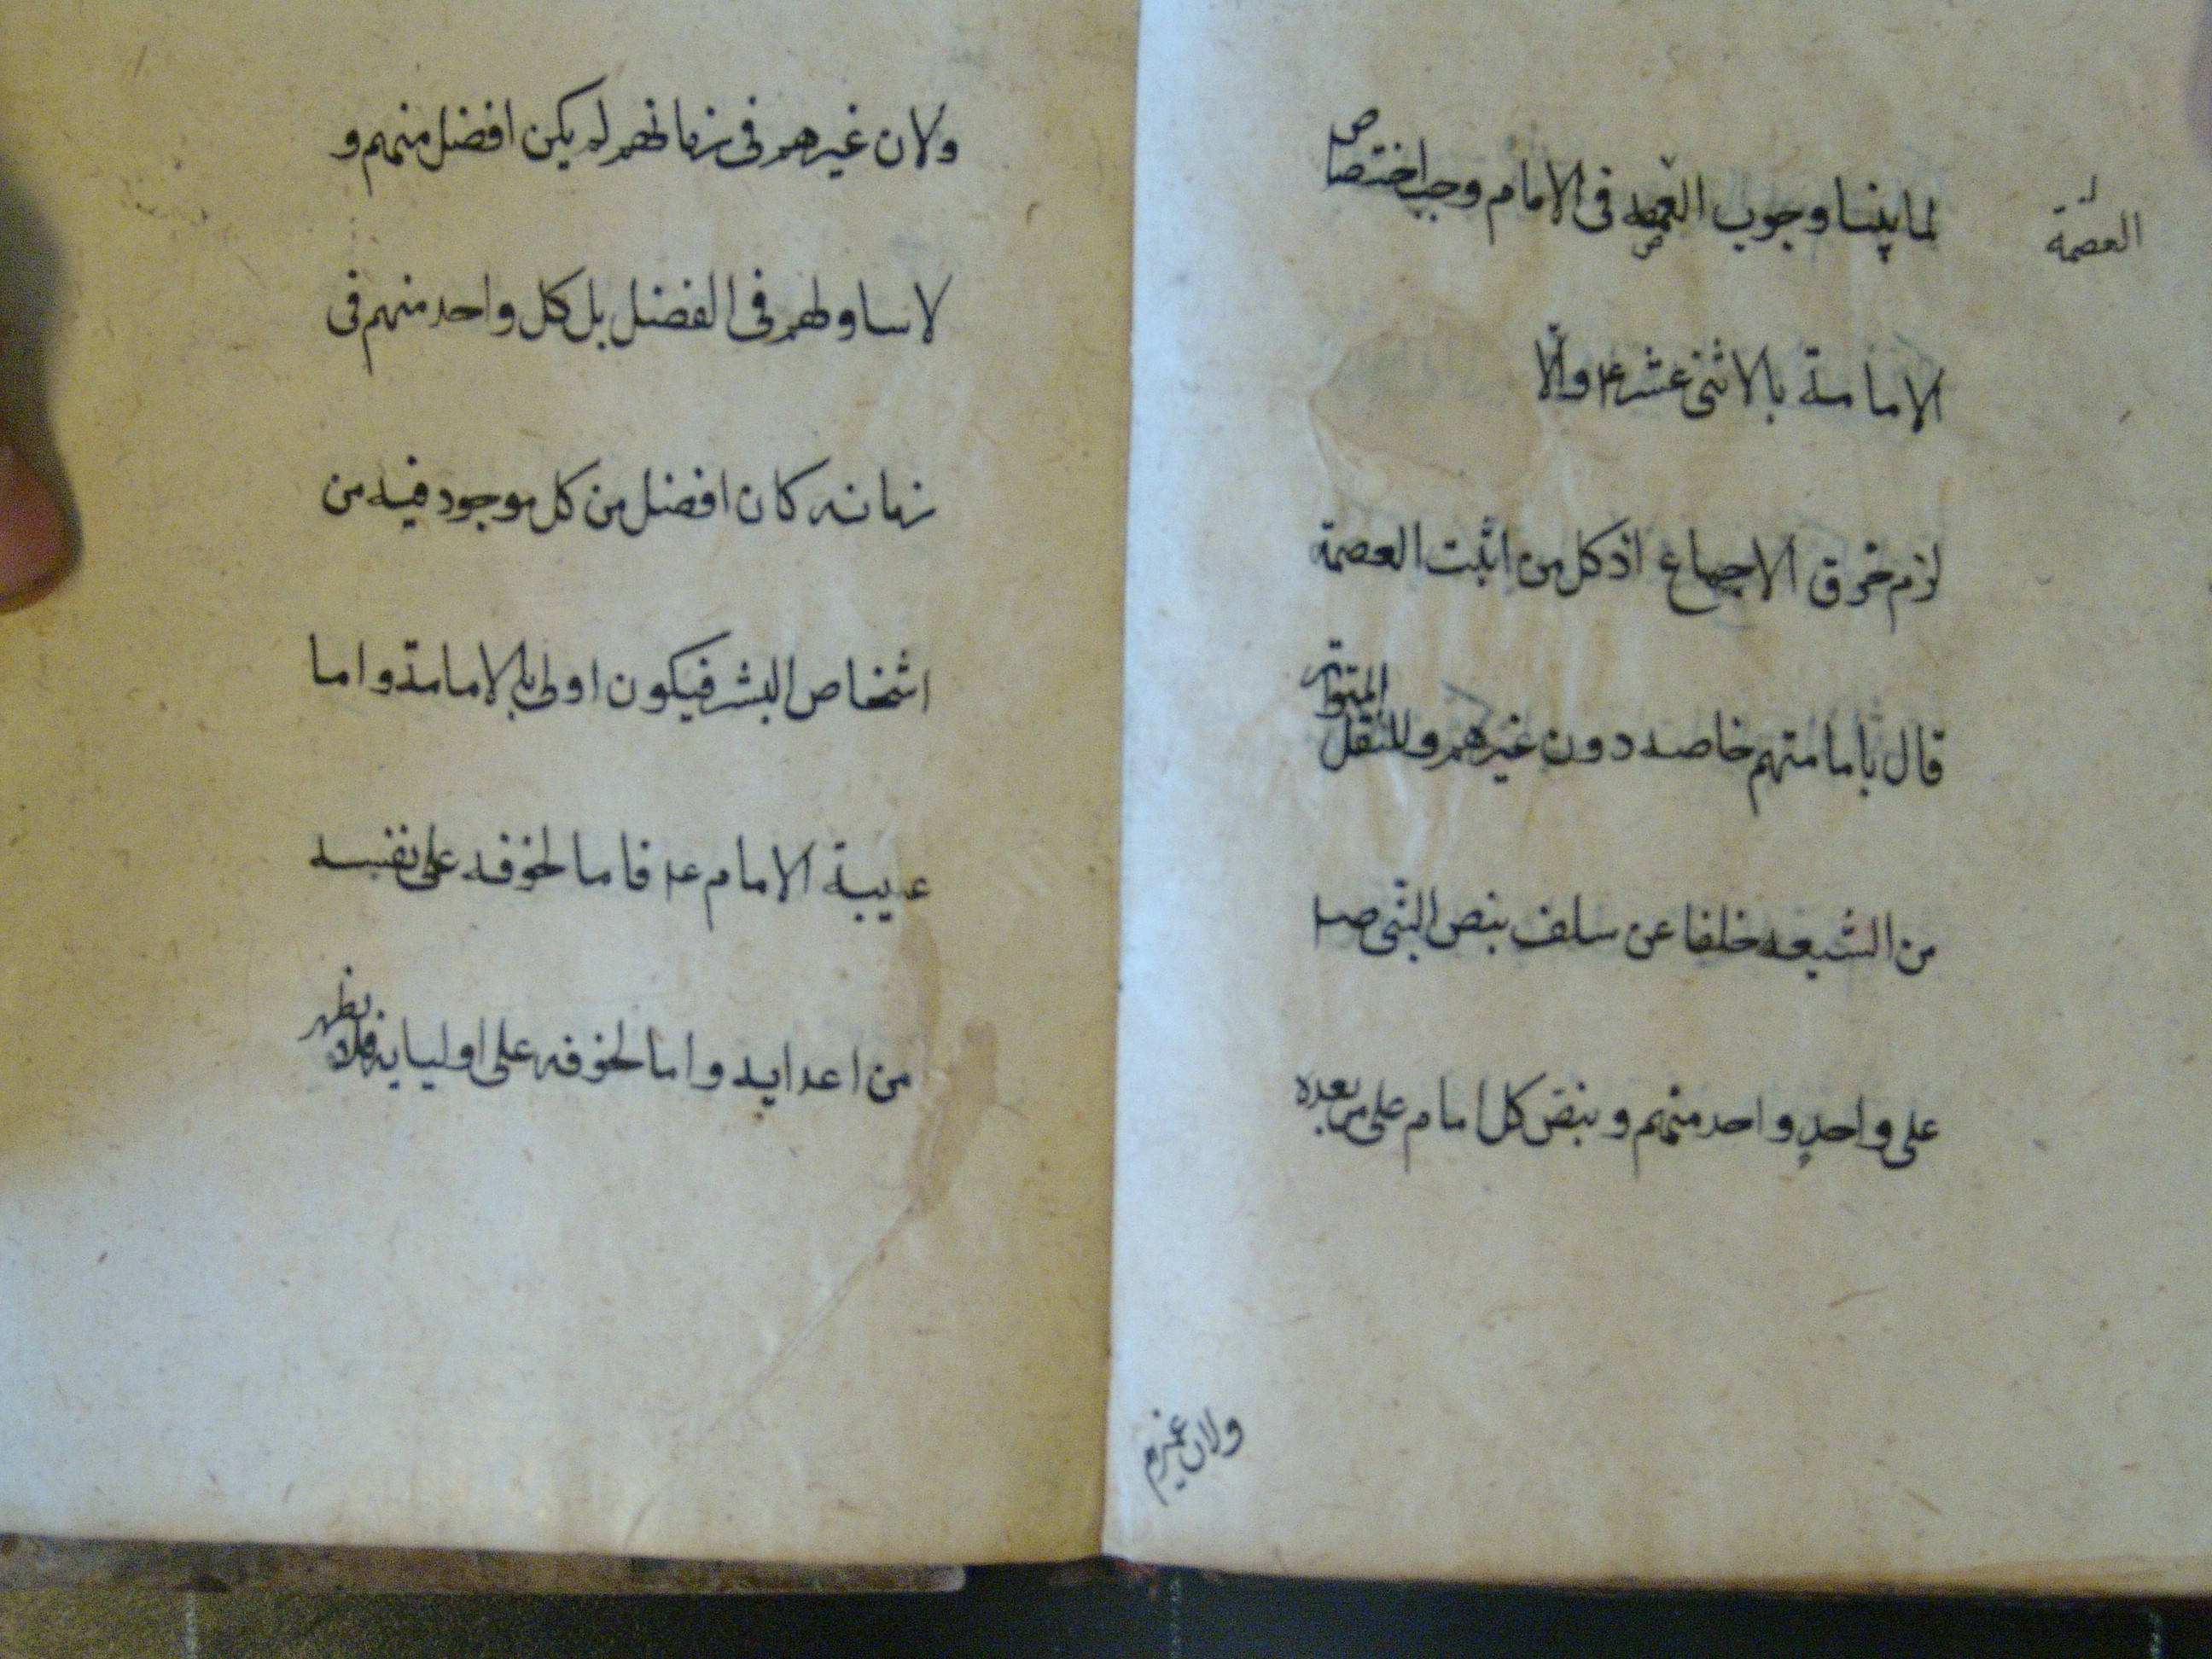 لما بينا وجوب العصمه فى الامام وجب اختصاص
العصمة
الامامة بالاثنى عشر ع‍ والّا
لزم خرق الاجماع اذ كل من اثبت العصمة
قال بامامتهم خاصه دون غيرهم وللنقل المتواتر
من الشيعه خلفا عن سلف بنص النبى ص‍
على واحدٍ واحد منهم وبنص كل امام على من بعده
ولان غيرهم
ولان غيرهم فى زمانهم لم يكن افضل منهم و
لا ساولهم فى الفضل بل كل واحد منهم فى
زمانه كان افضل من كل موجود فيه من
اشخاص البشر فيكون اولى بالامامة واما
عيبة الامام ع‍ فاما لخوفه على نفسه
من اعدايه واما لخوفه على اوليايه فلا يظهر